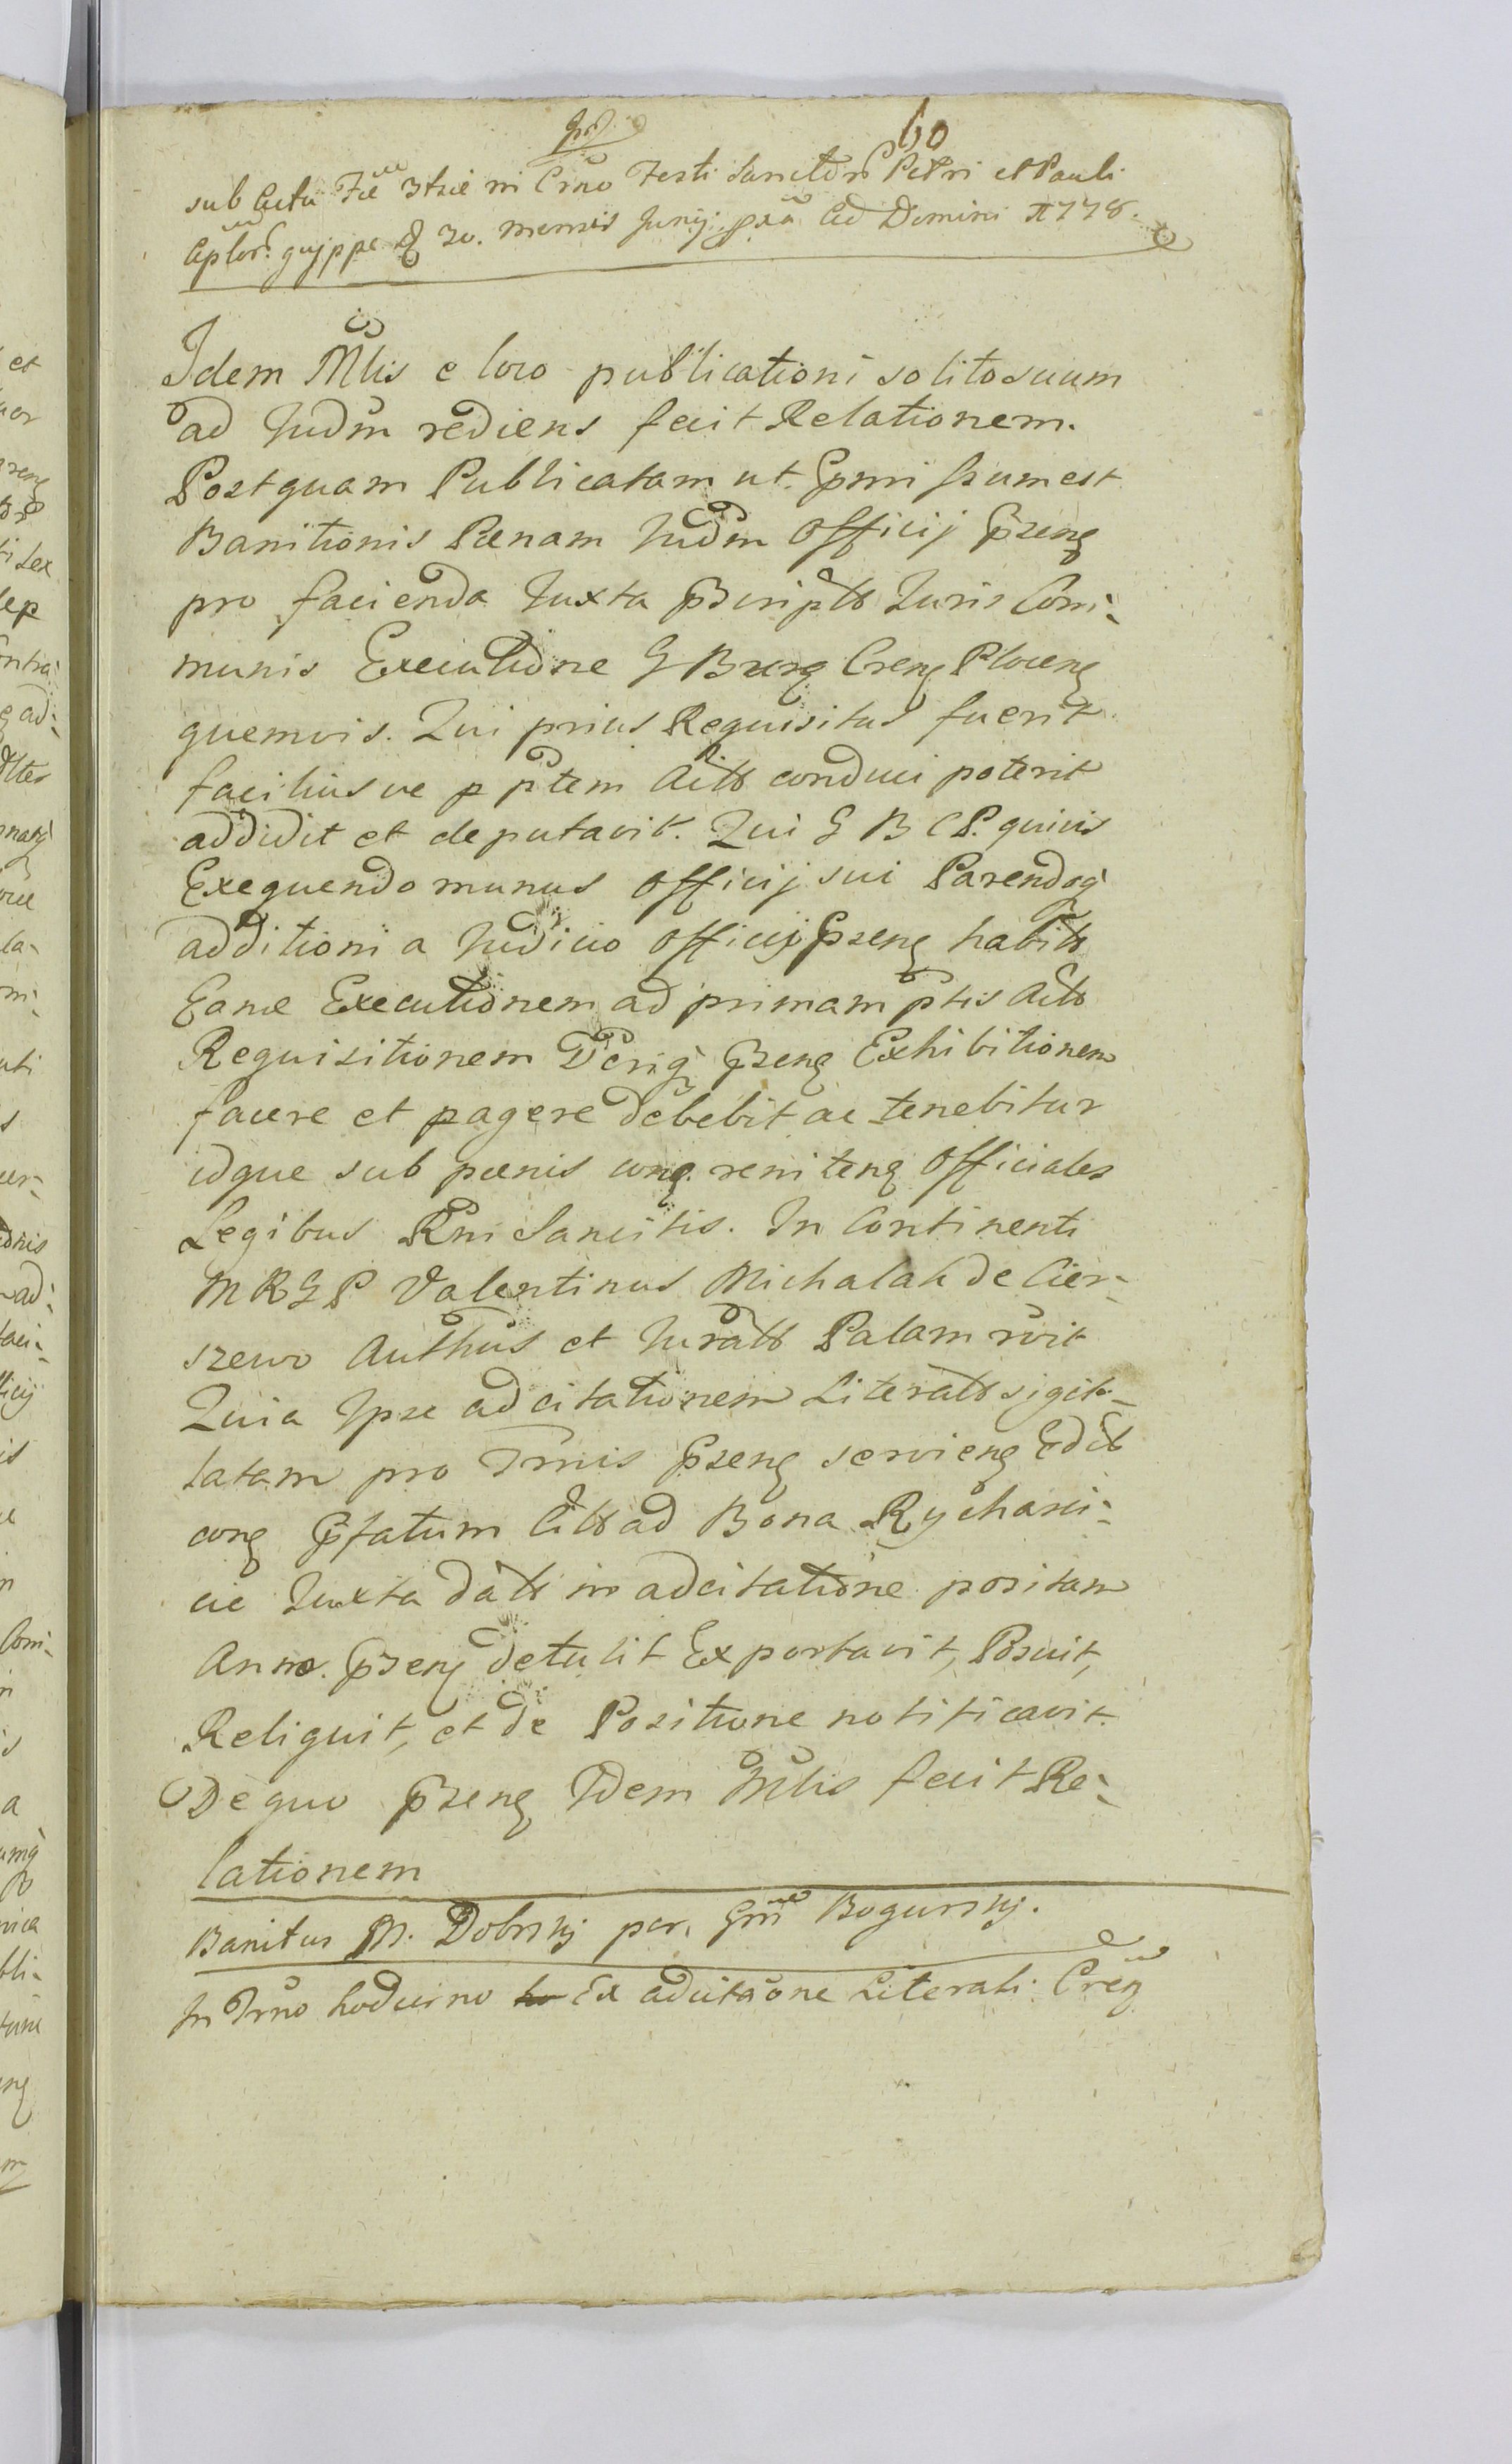 60
sub Actu Fæ 3tiæ in Crno Festi Sanctor Petri et Pauli
Aplor. quippe d 30. mensis Junij pxa Ad Domini 1778.
Idem Mlis e loco publicationi solito suum
ad Judm rediens fecit Relationem.
Postquam Publicatam ut pmissum est
Banitionis Pœnam Judm Officij pseng
pro facienda Juxta pscriptt Juris Com-
munis Executione G Burg Creng Ploceng
quemvis. Qui prius Requisitus fuerit
faciliusve p ptem Actt conduci poterit
addidit et deputavit. Qui G B C P. quivis
Exequendo munus Officij sui Parendoq
additioni a Judicio Officij pseng habitt
Eand Executionem ad primam ptis Actt
Requisitionem Decriq pseng Exhibitionem
facere et pagere debebit ac tenebitur
idque sub pœnis cong. reniteng Officiales
Legibus Rni Sancitis. In Continenti
M R G P Valentinus Michalak de Cier-
szewo Authus et Juratt Palam rvit
Quia Ipse adcitationem Literatt sigil-
latam pro Trmis pseng servieng Edit
cong pfatum Citt ad Bona Rychari-
cie Juxta datt in adcitatione positam
Anno. pseng detulit Exportavit, Posuit,
Reliquit, et de Positione notificavit.
De quo pseng Idem Mlis fecit Re-
lationem
Banitus M. Dobrskj per. Gm Bogurskj.
In Trno hodierno Ex adcitaone Literali Creg